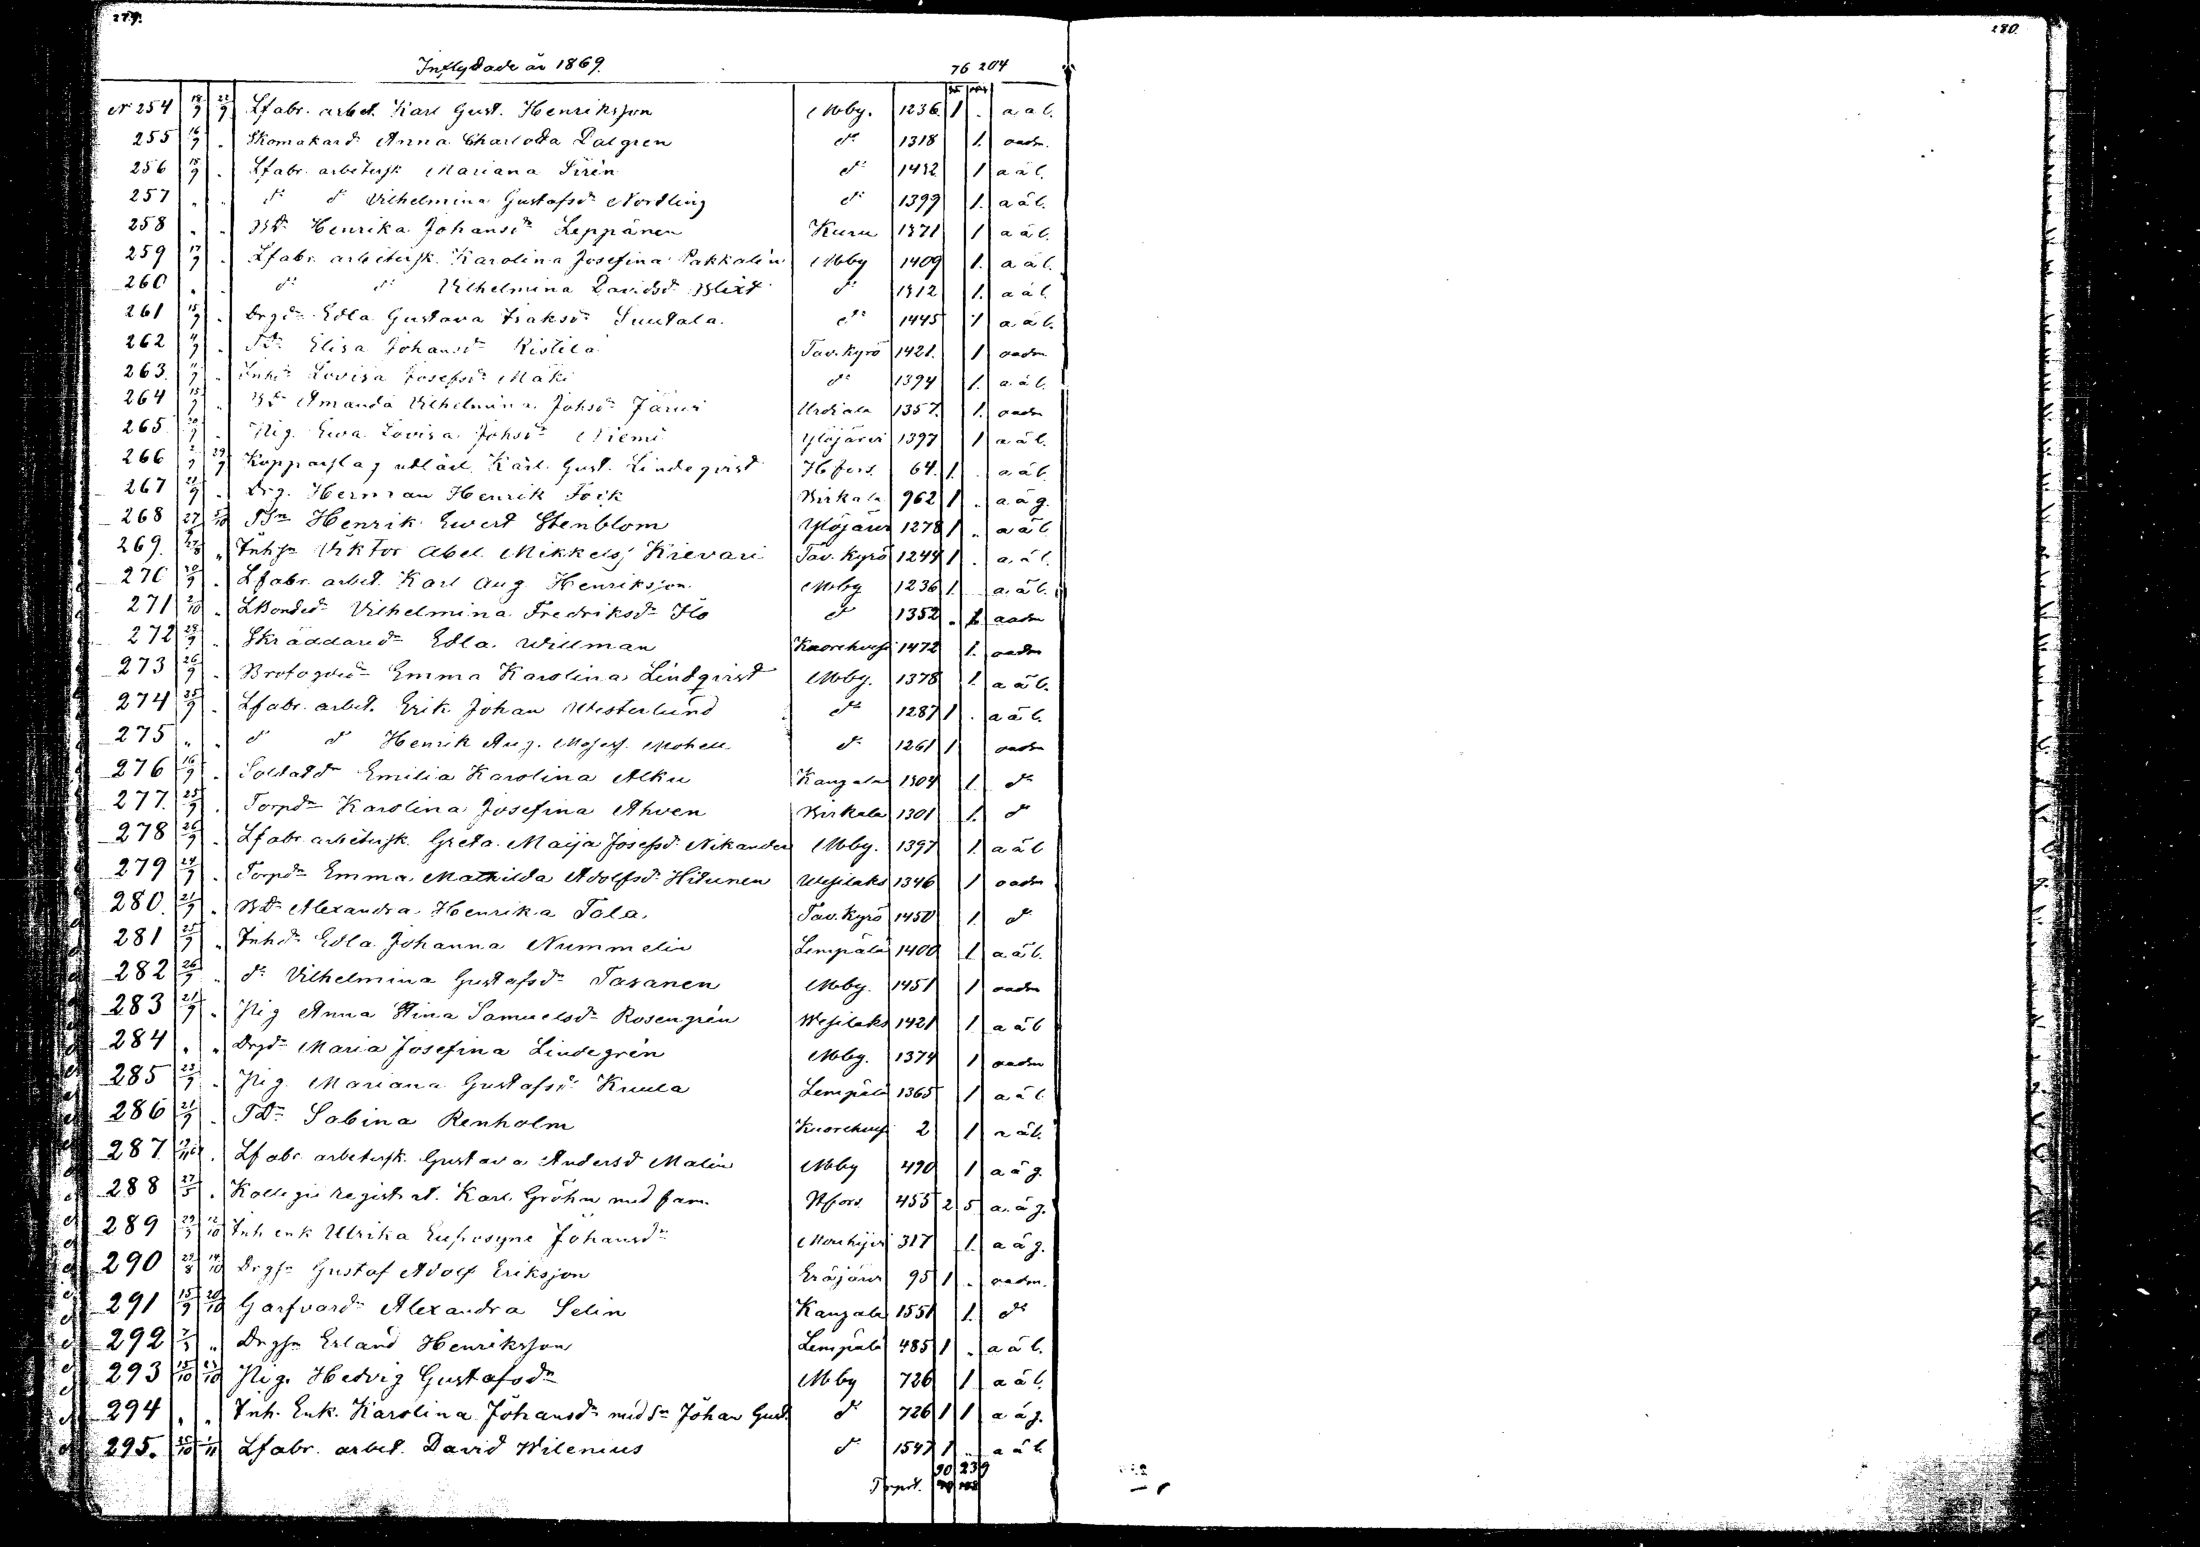 279. 280.
Inflyttade år 1869. 76 204
N 254 18/9 22/9 Lfabr. arbet. Karl Gust. Henriksson Mby. 1236 1 . a ä l.
255 16/9 . Skomakard: Anna Charlotta Dalgren d: 1318 1. oadm.
256 18/9 . Lfabr. arbetersk Mariana Sirèn d: 1432 1 a ä l.
257 " . d: d: Vilhelmina Gustafsd: Nordling d: 1399 1. a ä l.
258 " . Bd: Henrika Johansd: Leppänen Kuru 1371 1 a ä l.
259 17/9 . Lfabr. arbetersk. Karolina Josefina Pakkalèn Mby 1409 1. a ä l.
260 " . d: d: Vilhelmina Davidsd: Blixt d: 1312 1. a ä l.
261 . Drgd: Edla Gustava Isaksd: Suutala. d: 1445 1 a ä l.
262 . Td: Eliza Johansd: Ristilä Tav.kyrö 1421. 1 oadm
263. . Inhd: Lovisa Josefsd: Mäki d: 1394 1. a ä l.
264 . Bd: Amanda Vilhelmina Johsd: Järvi Urdiala 1357. 1. oadm
265 . Pig. Ewa Lovisa Johsd: Niemi Ylöjärvi 1397 1 a ä l.
266 29/9 Kopparslag. utlärl. Karl Gust. Lindeqvist Hfors. 64. 1. . a ä l.
267 . Drg. Herman Henrik Fock Birkala 962 1 . a ä g.
268 27 Tsn Henrik Ewert Stenblom Ylöjärvi 1278 1 . a ä l
269. " Inhsn Viktor Abel Mikkelsj Kievari Tav. Kyrö 1244 1 . a ä l.
270 20/9 . Lfabr. arbet. Karl Aug Henriksson Mby 1236 1. a ä l.
271 2/10 . LBonded: Vilhelmina Fredriksd: Ilo d: 1352 . 1 oadm
272 28/9 . Skräddared: Edla Willman 1472 1. oadm
273 26/9 . Emma Karolina Lindqvist Mby. 1378 1. a ä l.
274 25/9 . Lfabr. arbet. Erik Johan Westerlund d: 1287 1 . a ä l.
275 " . d: d: Henrik Aug. d: 1261 1 oadm
276 16/9 . Soldatd: Emilia Karolina Alku Kangala 1304 1. d:
277. 25/9 . Torpd: Karolina Josefina Ahven Birkala 1301 1. d:
278 26/9 . Lfabr. arbetersk. Greta Maija Josefsd: Nikander Mby. 1397 1. a ä l
279 24/9 . Torpd: Emma Mathilda Adolfsd: Hitunen Wesilaks 1346 1 oadm
280. 21/9 . Bd: Alexandra Henrika Tola. Tav. Kyrö 1450 1. d:
281 25/9 . Inhd: Edla Johanna Nummelin Lempälä 1400 1 a ä l.
282 26/9 . d: Vilhelmina Gustafsd: Tasanen Mby. 1451 1 oadm
283 21/9 . Pig Anna Stina Samuelsd: Rosengrèn Wesilaks 1421 1 a ä l
284 " " Drgd: Maria Josefina Lindegrèn Mby. 1374 1 oadm
285 23/9 . Pig. Mariana Gustafsd: Kuula Lempälä 1365 1 a ä l.
286 21/9 . Td: Sabina Renholm 2 1 a ä l.
287. . Lfabr. arbetersk. Gustava Andersd Malin Mby 490 1 a ä g.
288 27/5 . Kollegii regist rt. Karl Gröhn med fam. Hfors 455 2 5 a ä g.
289 12/10 Inh enk Ulrika Eufrosyne Johansd: Mouhijvi 317 1. a ä g.
290 14/10 Drgsn Gustaf Adolf Eriksson Eräjärvi 95 1 . oadm.
291 15/9 20/10 Garfvard: Alexandra Selin Kangala 1551 1. d:
292 " Drgsn Erland Henriksson Lempälä 485 1 . a ä l.
293 15/10 Pig. Hedvig Gustafsd: Mby 726 1 a ä l.
294 " " Inh. Enk. Karolina Johansd: med Sn Johan Gust. d: 726 1 1 a ä g.
295. 25/10 1/11 Lfabr. arbet. David Wilenius d: 1547 1 .. a ä l
90 239
Trspt.